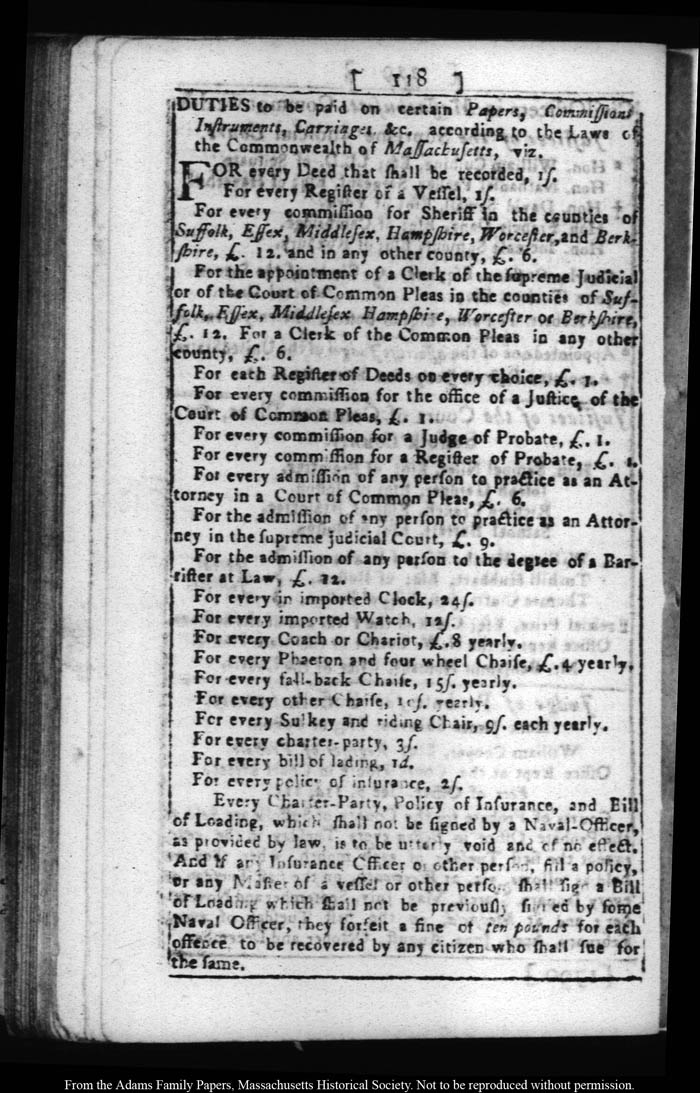 [ 118 ]
DUTIES to be paid on certain Papers, Commiſſions
Inſtruments, Carriages, &c. according to the Laws of
the Commonwealth of Maſſachuſetts, viz.
FOR every Deed that ſhall be recorded, 1ſ.
For every Regiſter of a Veſſel, 1ſ.
For every commiſſion for Sheriff in the counties of
Suffolk, Eſſex, Middleſex, Hampſhire, Worceſter, and Berk-
ſhire, £. 12. and in any other county, £. 6.
For the appointment of a Clerk of the ſupreme Judicial
or of the Court of Common Pleas in the counties of Suf-
folk, Eſſex, Middleſex Hampſhire, Worceſter or Berkſhire,
£. 12. For a Clerk of the Common Pleas in any other
county, £. 6.
For each Regiſter of Deeds on every choice, £. 1.
For every commiſſion for the office of a Juſtice of the
Court of Common Pleas, £. 1.
For every commiſſion for a Judge of Probate, £. 1.
For every commiſſion for a Regiſter of Probate, £. 1.
For every admiſſion of any perſon to practice as an At-
torney in a Court of Common Pleas, £. 6.
For the admiſſion of any perſon to practice as an Attor-
ney in the ſupreme judicial Court, £. 9.
For the admiſſion of any perſon to the degree of a Bar-
riſter at Law, £. 12.
For every in imported Clock, 24ſ.
For every imported Watch, 12ſ.
For every Coach or Chariot, £. 8 yearly.
For every Phaeton and four wheel Chaiſe, £. 4 yearly.
For every fall-back Chaiſe, 15ſ. yearly.
For every other Chaiſe, yearly.
For every Sulkey and riding Chair, 9ſ. each yearly.
For every charter-party, 3ſ.
For every bill of lading, 1d.
For every policy of inſurance, 2ſ.
Every Charter-Party, Policy of Inſurance, and Bill
of Loading, which ſhall not be ſigned by a Naval-Officer,
as provided by law, is to be utterly void and of no effect.
And if any Inſurance Officer or other perſon, fill a policy,
or any Maſter of a veſſel or other perſon ſhall ſign a Bill
of Loading which ſhall not be previouſly ſigned by ſome
Naval Officer, they forfeit a fine of ten pounds for each
offence to be recovered by any citizen who ſhall ſue for
the ſame.
From the Adams Family Papers, Massachusetts Historical Society. Not to be reproduced without permission.